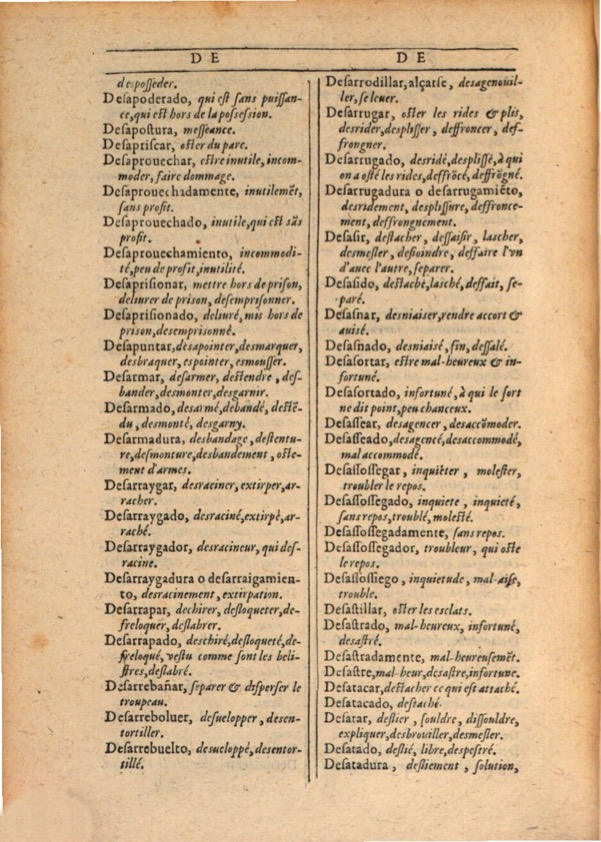 DE
deſpoſſeder.
Deſapoderado, qui eſt ſans puiſſan-
ce, qui eſt hors de la poſſeſſion.
Deſapoſtura, meſſeance.
Deſapriſcar, oſter du parc.
Deſaprouechar, eſtre inutile, incom-
moder, faire dommage.
Deſaprouechadamente, inutilemẽt,
ſans profit.
Deſaprouechado, inutile, qui eſt sãs
profit.
Deſaprouechamiento, incommodi-
té, peu de profit, inutilité.
Deſapriſionar, mettre hors de priſon,
deliurer de priſon, deſempriſonner.
Deſapriſionado, deliuré, mis hors de
priſon, deſempriſonné.
Deſapuntar, deſapointer, desmarquer,
desbraquer, eſpointer, eſmouſſer.
Deſarmar, deſarmer, deſtendre, deſ-
bander, desmonter, desgarnir.
Deſarmado, deſarmé, debandé, deſtẽ-
du, desmonté, desgarny.
Deſarmadura, desbandage, deſtentu-
re, desmonture, desbandement, oſte-
ment d'armes.
Deſarraygar, deſraciner, extirper, ar-
racher.
Deſarraygado, deſraciné, extirpé, ar-
raché.
Deſarraygador, deſracineur, qui deſ-
racine.
Deſarraygadura o deſarraigamien-
to, deſracinement, extirpation.
Deſarrapar, dechirer, deſloqueter, de-
freloquer, deſlabrer.
Deſarrapado, deſchiré, deſloqueté, de-
freloqué, veſtu comme ſont les beli-
ſtres, deſlabré.
Deſarrebañar, ſeparer & diſperſer le
troupeau.
Deſarreboluer, deſuelopper, deſen-
tortiller.
Deſarrebuelto, deſueloppé, deſentor-
tillé.
DE
Deſarrodillar, alçarſe, deſagenoüil-
ler, ſe leuer.
Deſarrugar, oſter les rides & plis,
deſrider, deſpliſſer, deffroncer, deſ-
frongner.
Deſarrugado, deſridé, deſpliſſé, à qui
on a oſté les rides, deffrõcé, deffrõgné.
Deſarrugadura o deſarrugamiẽto,
deſridement, deſpliſſure, deffronce-
ment, deffrongnement.
Deſaſir, deſtacher, deſſaiſir, laſcher,
desmeſler, deſioindre, deffaire l'vn
d'auec l'autre, ſeparer.
Deſaſido, deſtaché, laſché, deffait, ſe-
paré.
Deſaſnar, deſniaiſer, rendre accort &
auiſé.
Deſaſnado, deſniaiſé, fin, deſſalé.
Deſaſortar, eſtre mal-heureux & in-
fortuné.
Deſaſortado, infortuné, à qui le ſort
ne dit point, peu chanceux.
Deſaſſear, deſagencer, desaccõmoder.
Deſaſſeado, deſagencé, desaccommodé,
mal accommodé.
Deſaſſoſſegar, inquiéter, moleſter,
troubler le repos.
Deſaſſoſſegado, inquiete, inquieté,
ſans repos, troublé, moleſté.
Deſaſſoſſegadamente, ſans repos.
Deſaſſoſſegador, troubleur, qui oſte
le repos.
Deſaſſoſſiego, inquietude, mal-aiſe,
trouble.
Deſaſtillar, oſter les eſclats.
Deſaſtrado, mal-heureux, infortuné,
deſaſtré.
Deſaſtradamente, mal-heureuſemẽt.
Deſaſtre, mal-heur, deſaſtre, infortune.
Deſatacar, deſtacher ce qui eſt attaché.
Deſatacado, deſtaché.
Deſatar, deſlier, ſouldre, diſſouldre,
expliquer, desbrouiller, desmeſler.
Deſatado, deſlié, libre, deſpeſtré.
Deſatadura, deſliement, ſolution,